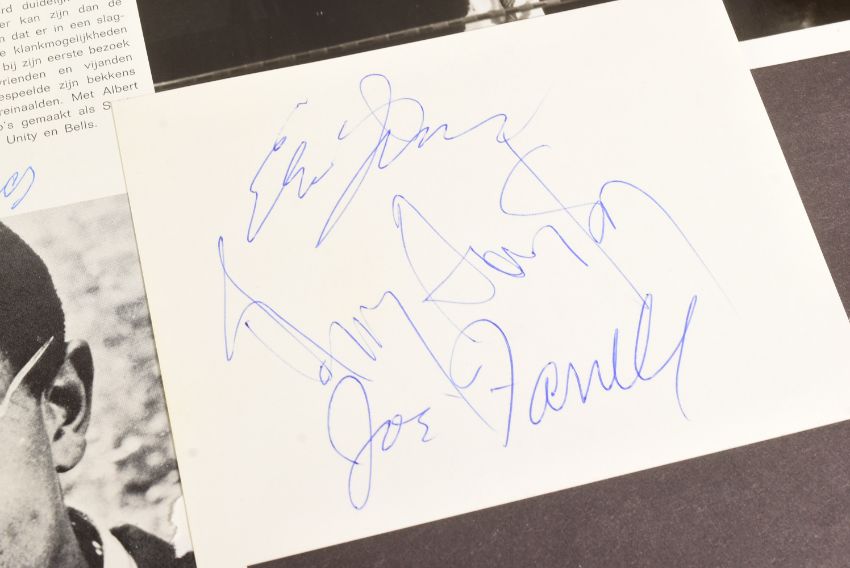 rd duidelijk
er kan zijn dan de
n dat er in een slag-
e klankmogelijkheden
bij zijn eerste bezoek
vrienden en vijanden
espeelde zijn bekkens
reinaalden. Met Albert
o's gemaakt als S
Unity en Bells.
Elvin Jones
Joe Farrell